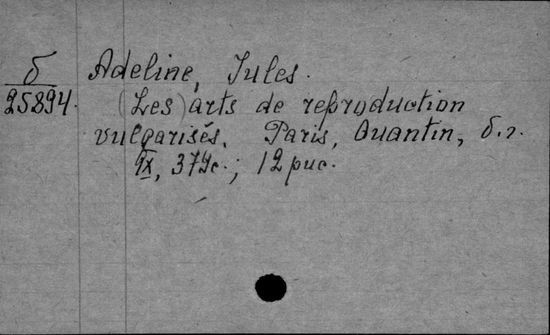 б Adeline, Jules.
25894. (Les) arts de reproduction
vulgarisés. Paris, Quantin, б.г.
IX, 379с.; 12 рис.